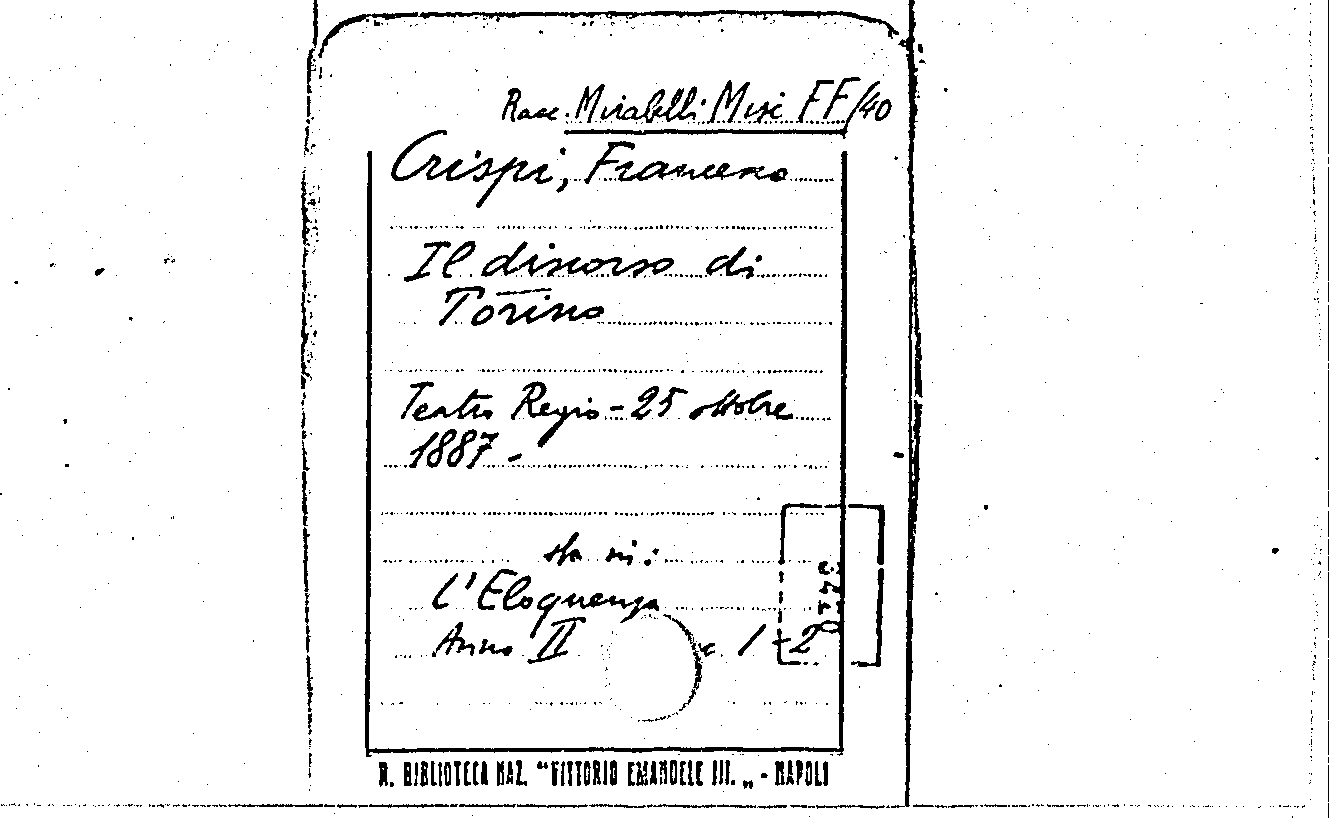 Racc. Mirabelli Misc FF/40
Crispi, Francesco
Il discorso di
Torino
Teatro Regio - 25 ottobre
1887 -
sta in:
L'Eloquenza
Anno II 1-2
R. BIBLIOTECA NAZ. “VITTORIO EMANUELE III. „ - NAPOLI